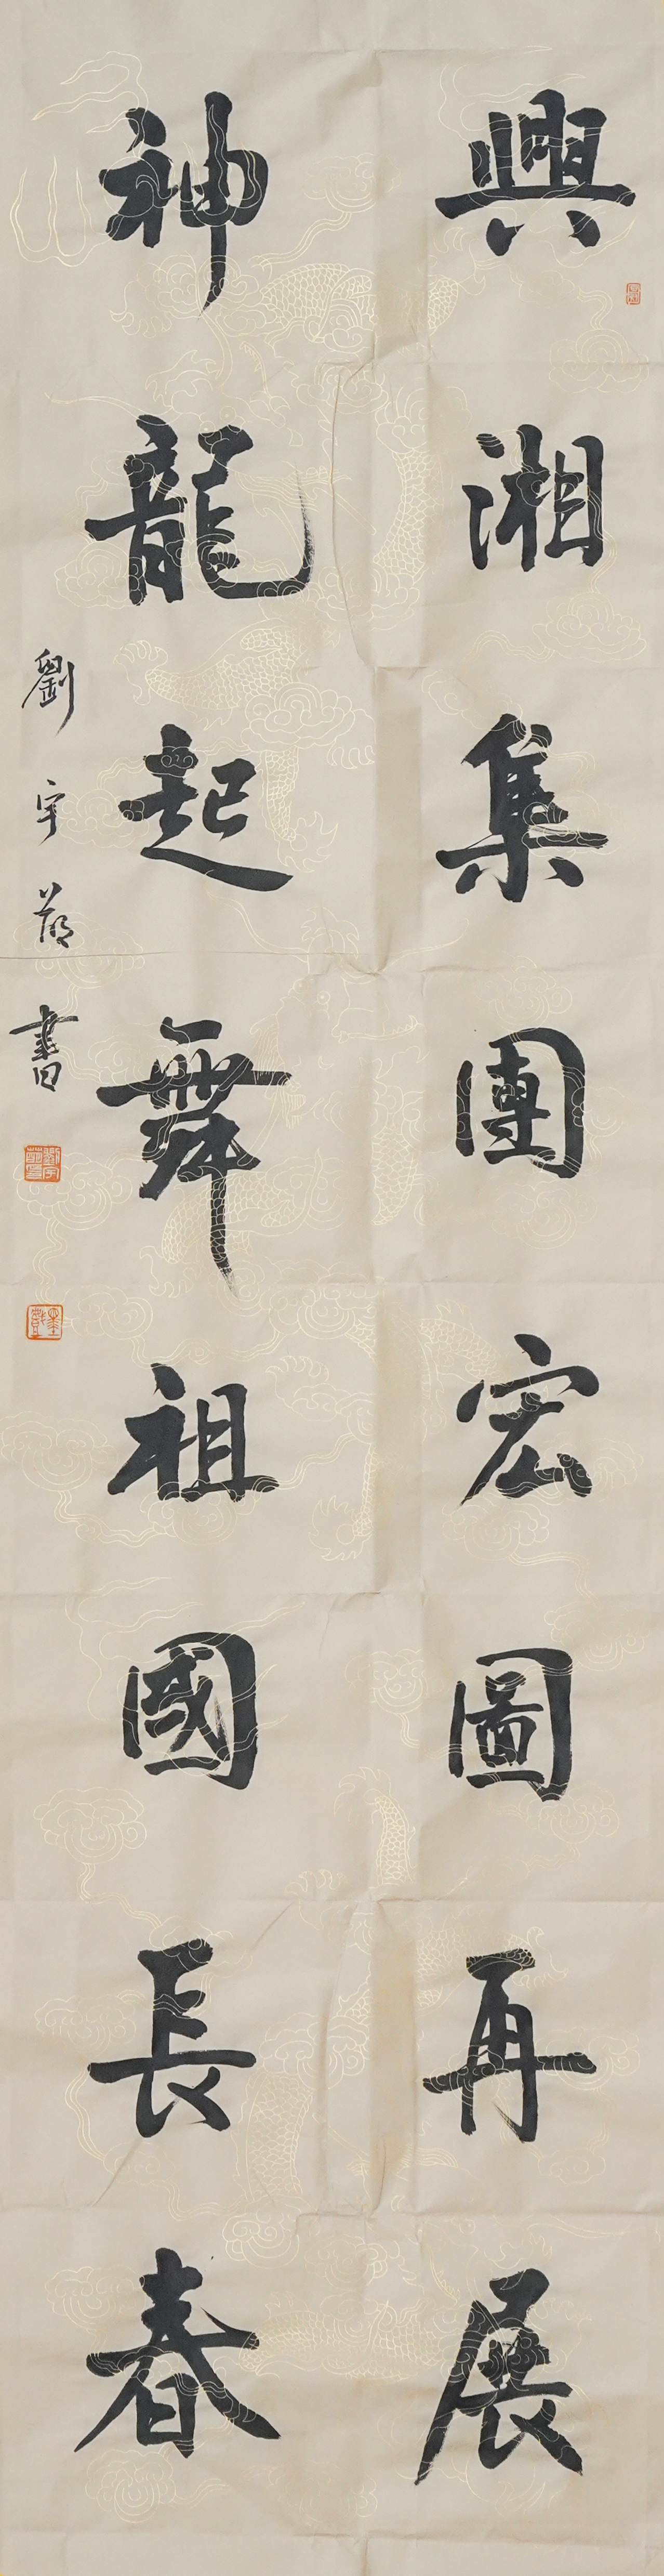 興湘集團宏圖再展
神龍起舞祖國長春
劉宇 書